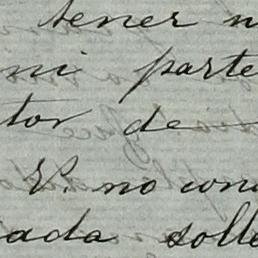 tener n
ni parte
tor de
V. no cono
ada solle